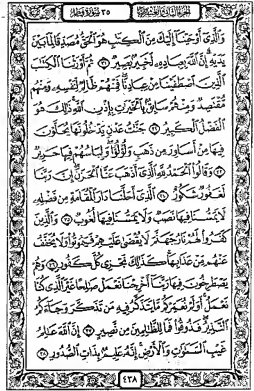 الجزء الثاني والعشرون ٣٥ سورة فاطر
وَالَّذِي أَوْحَيْنَا إِلَيْكَ مِنَ الْكِتَابِ هُوَ الْحَقُّ مُصَدِّقًا لِّمَا بَيْنَ
يَدَيْهِ إِنَّ اللَّهَ بِعِبَادِهِ لَخَبِيرٌ بَصِيرٌ ٣١ ثُمَّ أَوْرَثْنَا الْكِتَابَ
الَّذِينَ اصْطَفَيْنَا مِنْ عِبَادِنَا فَمِنْهُمْ ظَالِمٌ لِّنَفْسِهِ وَمِنْهُم
مُّقْتَصِدٌ وَمِنْهُمْ سَابِقٌ بِالْخَيْرَاتِ بِإِذْنِ اللَّهِ ذَٰلِكَ هُوَ
الْفَضْلُ الْكَبِيرُ ٣٢ جَنَّاتُ عَدْنٍ يَدْخُلُونَهَا يُحَلَّوْنَ
فِيهَا مِنْ أَسَاوِرَ مِن ذَهَبٍ وَلُؤْلُؤًا وَلِبَاسُهُمْ فِيهَا حَرِيرٌ
٣٣ وَقَالُوا الْحَمْدُ لِلَّهِ الَّذِي أَذْهَبَ عَنَّا الْحَزَنَ إِنَّ رَبَّنَا
لَغَفُورٌ شَكُورٌ ٣٤ الَّذِي أَحَلَّنَا دَارَ الْمُقَامَةِ مِن فَضْلِهِ
لَا يَمَسُّنَا فِيهَا نَصَبٌ وَلَا يَمَسُّنَا فِيهَا لُغُوبٌ ٣٥ وَالَّذِينَ
كَفَرُوا لَهُمْ نَارُ جَهَنَّمَ لَا يُقْضَىٰ عَلَيْهِمْ فَيَمُوتُوا وَلَا يُخَفَّفُ
عَنْهُم مِّنْ عَذَابِهَا كَذَٰلِكَ نَجْزِي كُلَّ كَفُورٍ ٣٦ وَهُمْ
يَصْطَرِخُونَ فِيهَا رَبَّنَا أَخْرِجْنَا نَعْمَلْ صَالِحًا غَيْرَ الَّذِي كُنَّا
نَعْمَلُ أَوَلَمْ نُعَمِّرْكُم مَّا يَتَذَكَّرُ فِيهِ مَن تَذَكَّرَ وَجَاءَكُمُ
النَّذِيرُ فَذُوقُوا فَمَا لِلظَّالِمِينَ مِن نَّصِيرٍ ٣٧ إِنَّ اللَّهَ عَالِمُ
غَيْبِ السَّمَاوَاتِ وَالْأَرْضِ إِنَّهُ عَلِيمٌ بِذَاتِ الصُّدُورِ ٣٨
٤٣٨